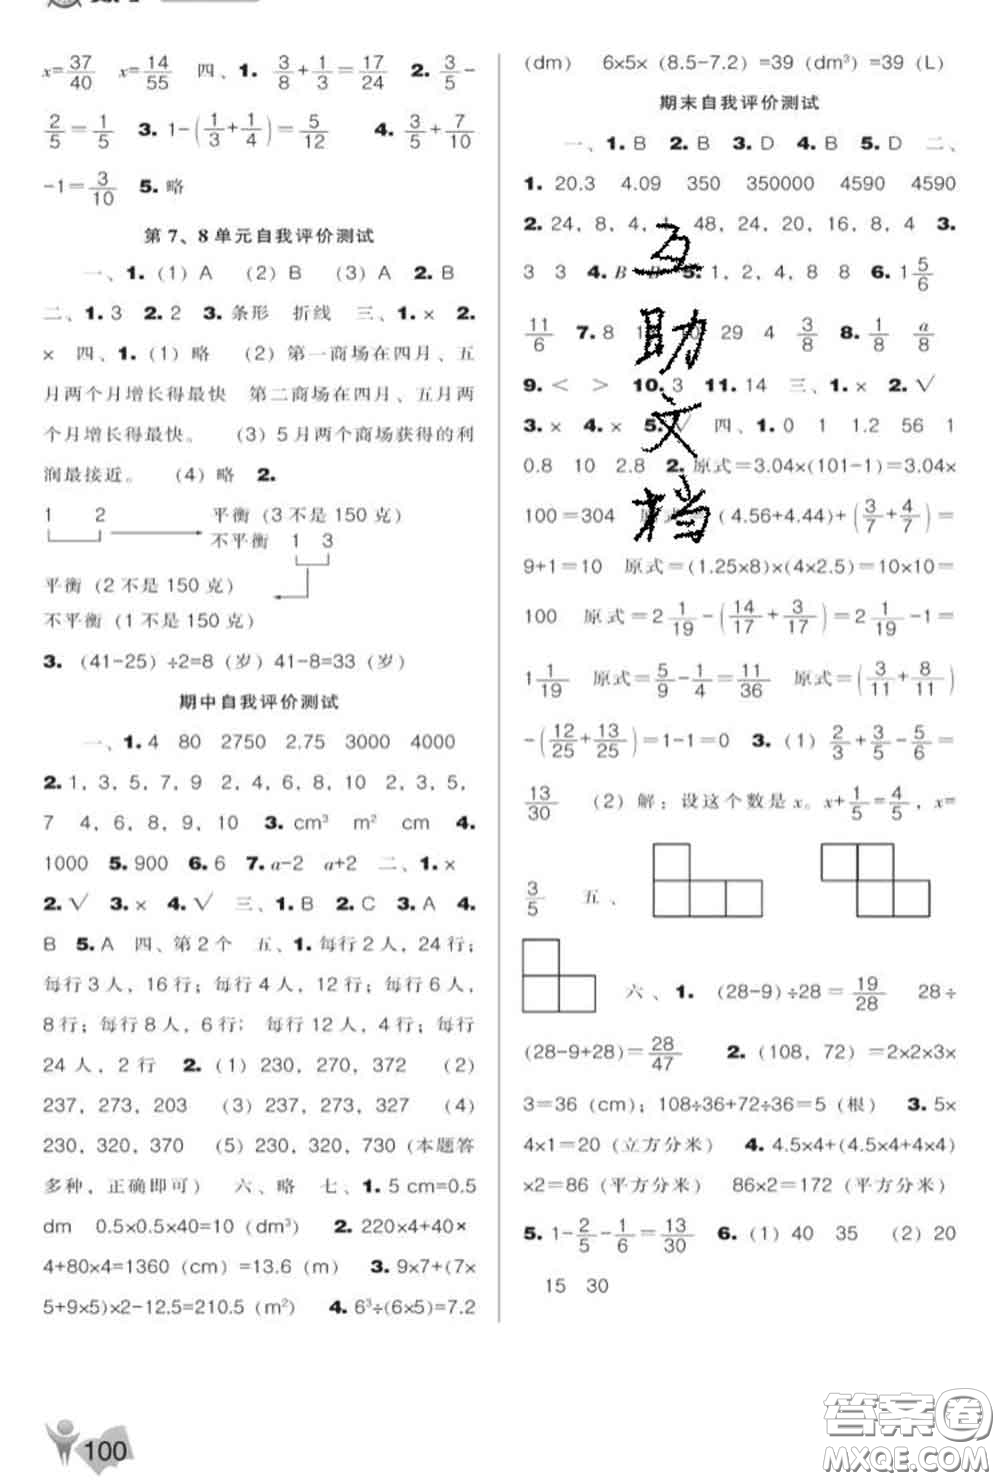 x=37/40 x=14/55 四、1. 3/8+1/3=17/24 2. 3/5-
2/5=1/5 3. 1-(1/3+1/4)=5/12 4. 3/5+7/10
-1=3/10 5. 略
第 7、8 单元自我评价测试
一、1.(1) A (2) B (3) A 2. B
二、1. 3 2. 2 3. 条形 折线 三、1. × 2.
× 四、1.(1) 略 (2) 第一商场在四月、五
月两个月增长得最快 第二商场在四月、五月两
个月增长得最快。 (3) 5 月两个商场获得的利
润最接近。 (4) 略 2.
1 2 平衡 (3 不是 150 克)
不平衡 1 3
平衡 (2 不是 150 克)
不平衡 (1 不是 150 克)
3. (41-25) ÷2=8 (岁) 41-8=33 (岁)
期中自我评价测试
一、1. 4 80 2750 2.75 3000 4000
2. 1, 3, 5, 7, 9 2, 4, 6, 8, 10 2, 3, 5,
7 4, 6, 8, 9, 10 3. cm³ m² cm 4.
1000 5. 900 6. 6 7. a-2 a+2 二、1. ×
2. √ 3. × 4. √ 三、1. B 2. C 3. A 4.
B 5. A 四、第 2 个 五、1. 每行 2 人，24 行；
每行 3 人，16 行；每行 4 人，12 行；每行 6 人，
8 行；每行 8 人，6 行； 每行 12 人，4 行；每行
24 人，2 行 2. (1) 230, 270, 372 (2)
237, 273, 203 (3) 237, 273, 327 (4)
230, 320, 370 (5) 230, 320, 730 (本题答
多种，正确即可) 六、略 七、1. 5 cm=0.5
dm 0.5×0.5×40=10 (dm³) 2. 220×4+40×
4+80×4=1360 (cm) =13.6 (m) 3. 9×7+(7×
5+9×5)×2-12.5=210.5 (m²) 4. 6³÷(6×5)=7.2
(dm) 6×5× (8.5-7.2) =39 (dm³) =39 (L)
期末自我评价测试
一、1. B 2. B 3. D 4. B 5. D 二、
1. 20.3 4.09 350 350000 4590 4590
2. 24, 8, 4, 48, 24, 20, 16, 8, 4 3.
3 3 4. B 5. 1, 2, 4, 8 8 6. 1 5/6
11/6 7. 8 29 4 3/8 8. 1/8 a/8
9. < > 10. 3 11. 14 三、1. × 2. √
3. × 4. × 5. √ 四、1. 0 1 1.2 56 1
0.8 10 2.8 2. 原式=3.04×(101-1)=3.04×
100=304 (4.56+4.44)+(3/7+4/7)=
9+1=10 原式=(1.25×8)×(4×2.5)=10×10=
100 原式=2 1/19-(14/17+3/17)=2 1/19-1=
1 1/19 原式=5/9-1/4=11/36 原式=(3/11+8/11)
-(12/25+13/25)=1-1=0 3. (1) 2/3+3/5-5/6=
13/30 (2) 解：设这个数是 x。x+1/5=4/5，x=
3/5 五、
六、1. (28-9) ÷28=19/28 28÷
(28-9+28)=28/47 2. (108, 72) =2×2×3×
3=36 (cm)；108÷36+72÷36=5 (根) 3. 5×
4×1=20 (立方分米) 4. 4.5×4+(4.5×4+4×4)
×2=86 (平方分米) 86×2=172 (平方分米)
5. 1-2/5-1/6=13/30 6. (1) 40 35 (2) 20
15 30
互助文档
100
答案卷
MXQE.COM